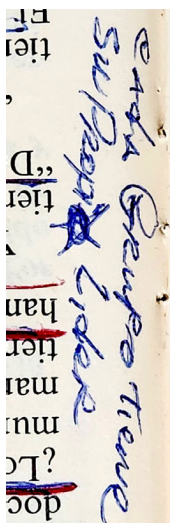 cada Grupo tiene
su Propio Lider
El
tien
"D
tien
han
tien
mar
mun
¿Lo
doc